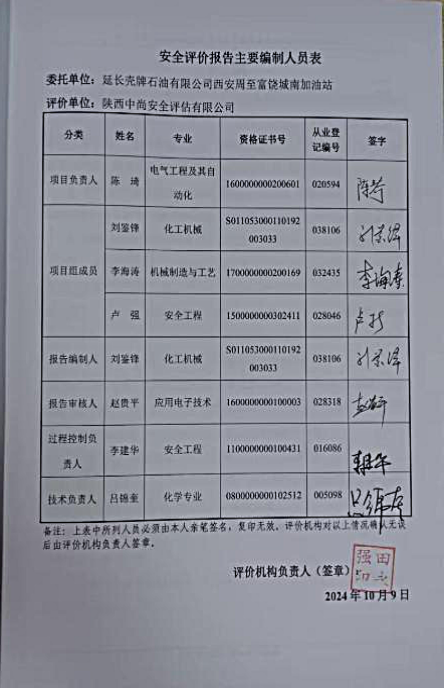 安全评价报告主要编制人员表
委托单位：延长壳牌石油有限公司西安周至富饶城南加油站
评价单位：陕西中尚安全评估有限公司
分类 姓名 专业 资格证书号 从业登记编号 签字
项目负责人 陈琦 电气工程及其自动化 1600000000200601 020594 陈琦
项目组成员 刘鉴锋 化工机械 S011053000110192003033 038106
李海涛 机械制造与工艺 1700000000200169 032435 李海涛
卢强 安全工程 1500000000302411 028046 卢强
报告编制人 刘鉴锋 化工机械 S011053000110192003033 038106
报告审核人 赵贵平 应用电子技术 1600000000100003 028318
过程控制负责人 李建华 安全工程 1100000000100431 016086
技术负责人 吕锦奎 化学专业 0800000000102512 005098
备注：上表中所列人员必须由本人亲笔签名，复印无效。评价机构对以上情况确认无误
后由评价机构负责人签章。
评价机构负责人（签章）
2024年10月9日